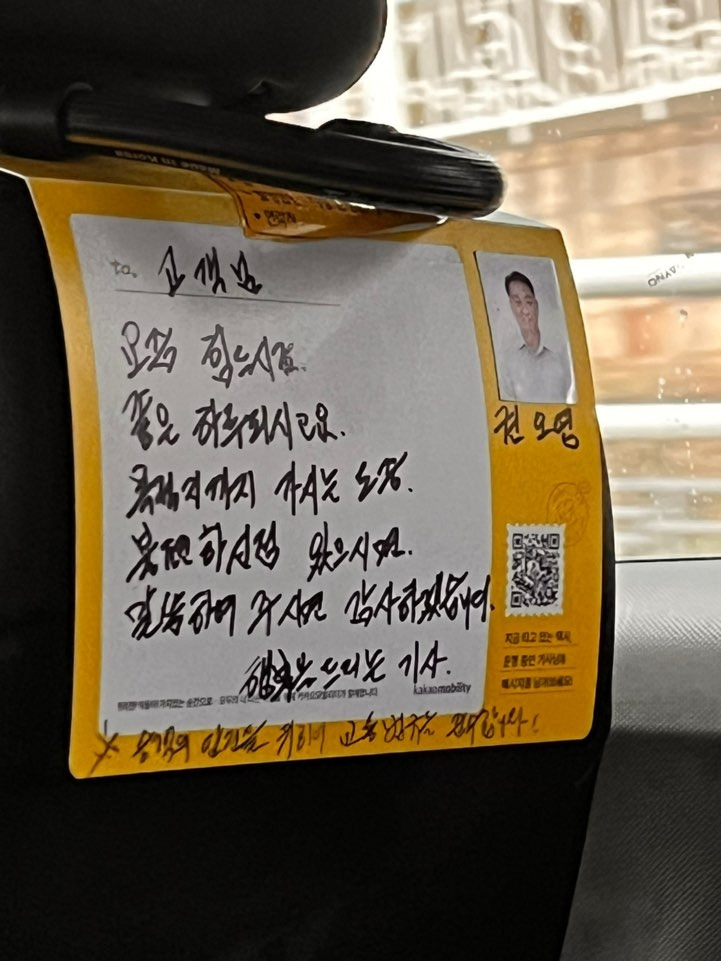 Made in Korea
• 연락처
to. 고객님
오늘 하루도
좋은 하루되시고요.
목적지까지 가시는 도중.
불편하신점 있으시면.
말씀하여 주시면 감사하겠습니다.
행복을 드리는 기사.
kakaomobility
권오영
지금 타고 있는 택시,
운행 중인 기사님께
메시지를 남겨보세요!
※ 승객의 안전을 위하여 교통법규를 준수합니다!